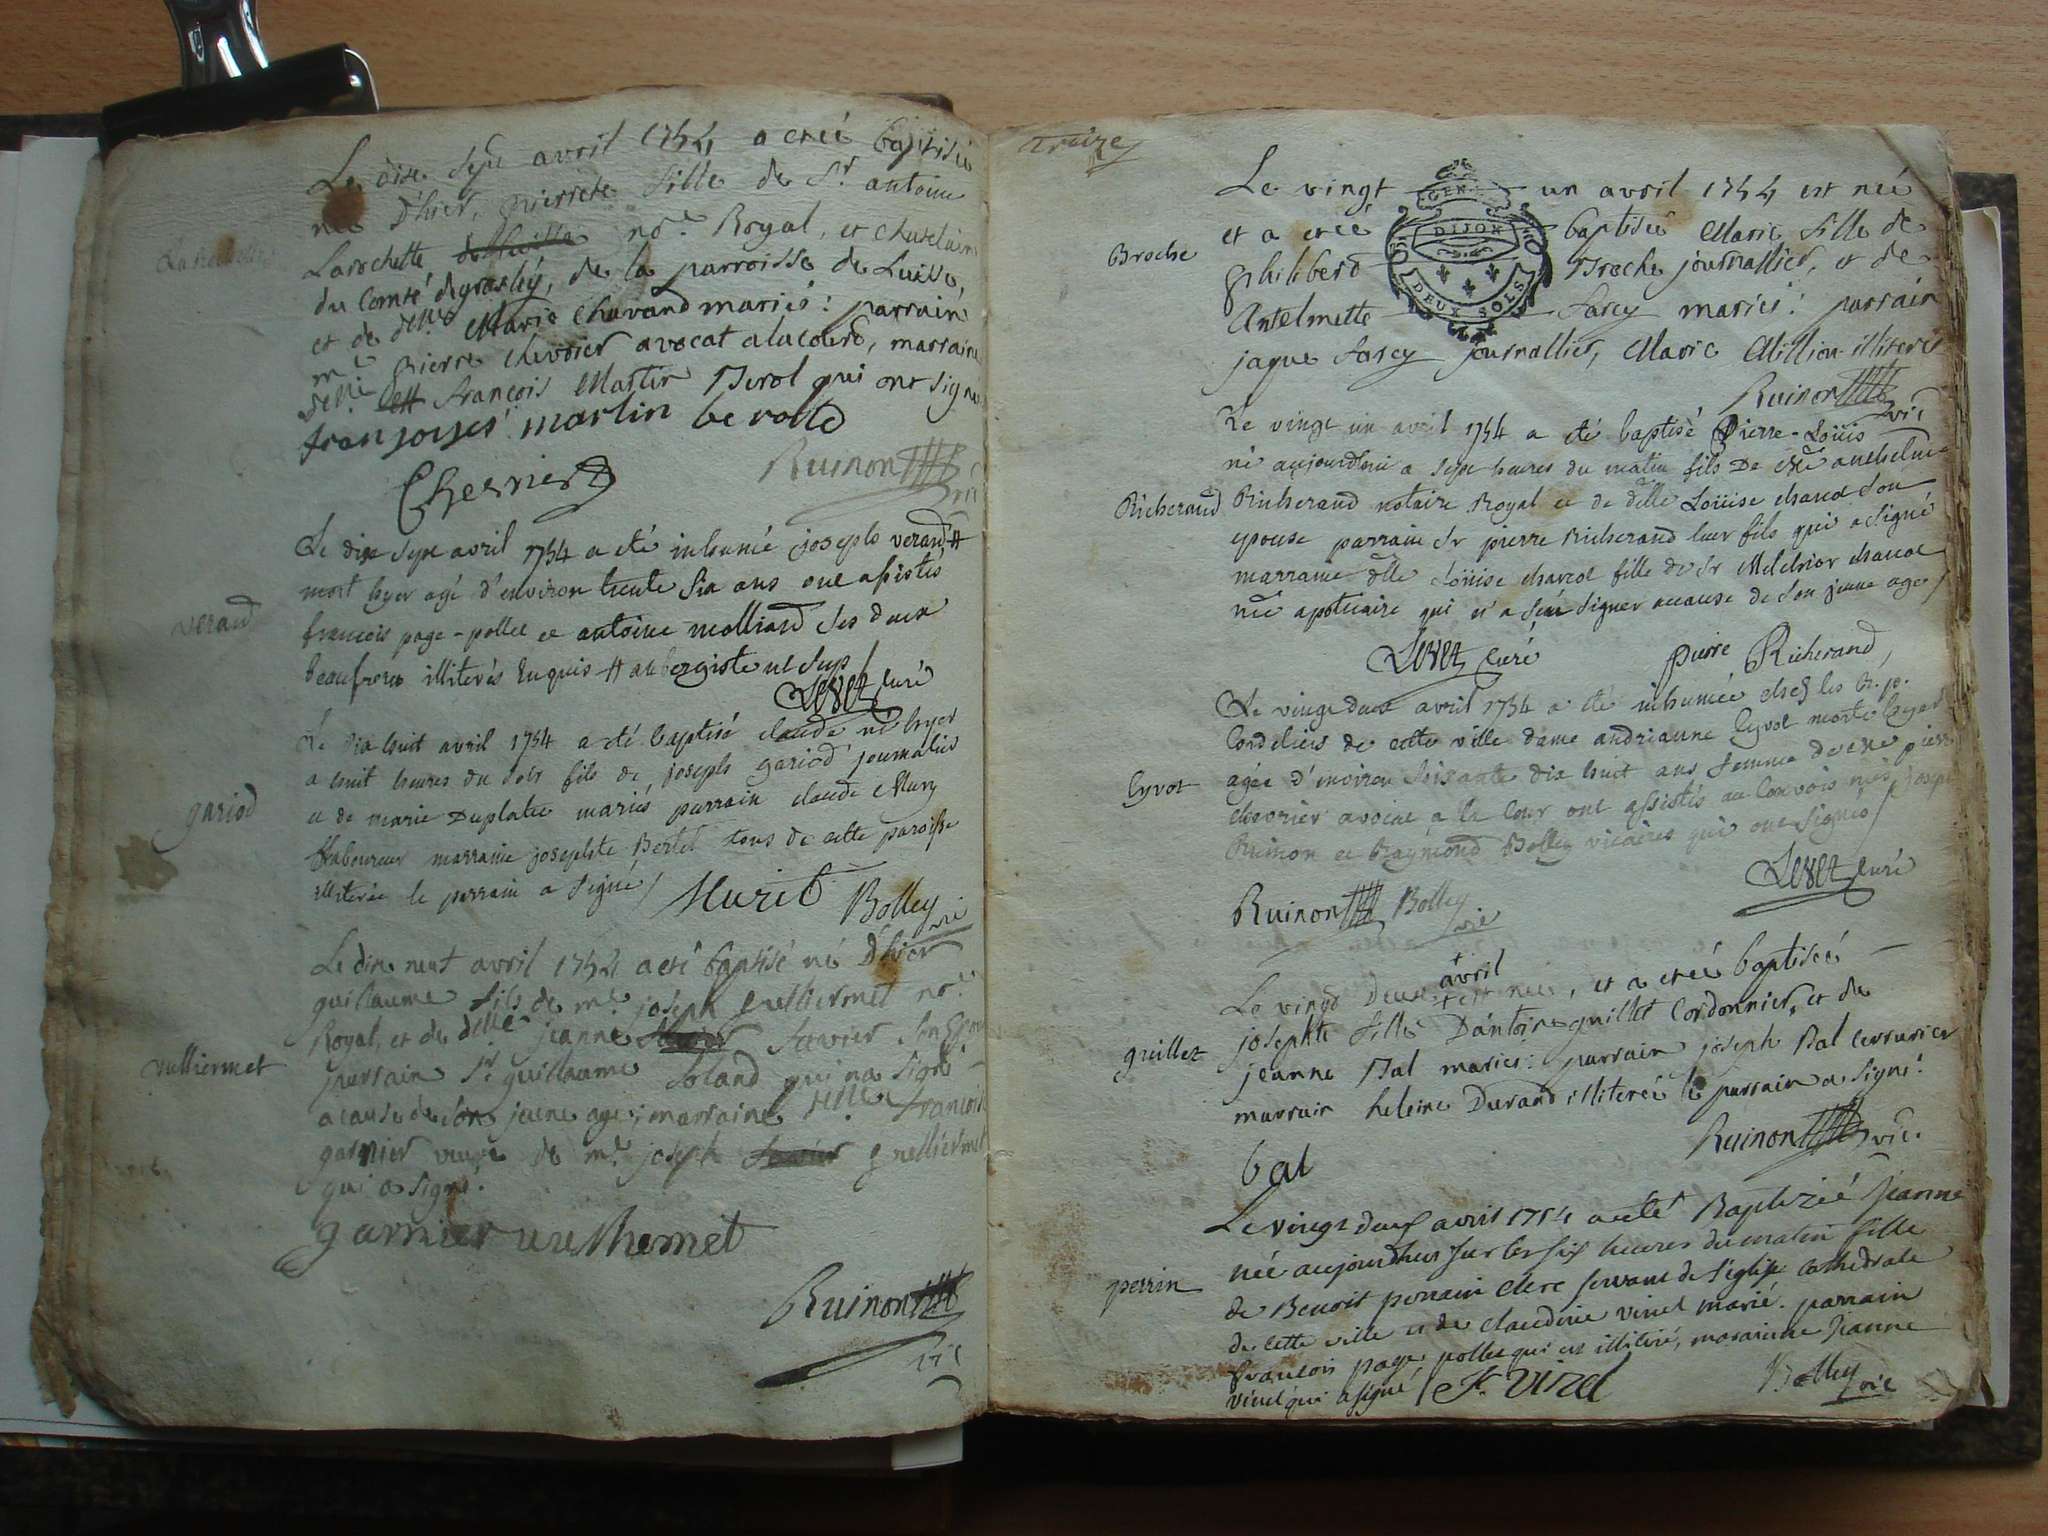 Le dixe sept avril 1754 a etéé baptisée
née D'hier, pierrete fille de Sr. antoine
Larochette no.e Royal, et chatelain
du Comté de groslèy, de la parroisse de Luisse,
et de delle Marie Chavand mariés: parrain
me. pierre chevrier avocat a la courd, marraine
delle françois Martin Berol qui ont signé
franjoises martin berolle
Chevrier
Ruinon vic
Larochette
Le dix sept avril 1754 a eté inhumé joseph verand #
mort hyer agé d'environ trente six ans ont assistés
francois page-pollet et antoine molliard ses deux
beaufreres illiterés enquis # aubergiste ut sup /
Levet curé
verand
Le dix huit avril 1754 a eté baptisé claude né hyer
a huit heures du soir fils de joseph gariod journalier
et de marie Duplatre mariés parrain claude Mury
laboureur marraine josephte Bertet tous de cette paroisse
illiterée le parrain a signé /
Murit Bolley vic
gariod
Le dix neuf avril 1754 a eté baptisé né D'hier
guillaume fils de me. joseph vulliermet no.e
Royal, et de delle jeanne Savier son Epouse
parrain Sr. guillaume Soland qui na signé
a cause de son jeune age; marraine delle francoise
garnier veuve de me. joseph vulliermet
qui a signé.
garnier vulhemet
Ruinon
vic
vulliermet
treize
Le vingt un avril 1754 est née
et a etéé baptisée Marie fille de
philiberd Broche journallier, et de
Antelmette Sarcy mariés: parrain
jaque Sarcy journallier, Marie Million illiterés
Ruinon vic
GEN.
DIJON
DEUX SOLS
Broche
Le vingt un avril 1754 a eté baptisé Pierre-Loüis
né aujourdhui a sept heures du matin fils de me anthelme
Richerand notaire Royal et de dlle Loüise charcot son
epouse parrain Sr pierre Richerand leur fils qui a signé
marraine dlle Loüise charcot fille de Sr Melchior charcot
me apoticaire qui n'a seu signer acause de son jeune age /
Levet curé pierre Richerand
Richerand
Le vingt deux avril 1754 a eté inhumée chez les R. p.
Cordeliers de cette ville dame andrianne Cyvot morte hyer
agée d'environ soixante dix huit ans femme de me pierre
chevrier avocat a la Cour ont assistés au convois mes joseph
Ruinon et Raymond Bolley vicaires qui ont signés /
Levet curé
Ruinon Bolley
vic
Cyvot
Le vingd Deux avril est née, et a etéé baptiseé
josephte fille D'antoine guillet Cordonnier, et de
jeanne Bal mariés: parrain joseph Bal serrurier
marrain heleine Durand illitereé le parrain a signé.
Ruinon vic.
bal
guillet
Le vingt deux avril 1754 a eté Baptizéé Jeanne
née aujourdhui sur les six heures du matin fille
de Benoit perrain clerc servant de l'église Cathédrale
de cette ville et de claudine vinel marié. parrain
francois page pollet qui est illitéré, maraine Jeanne
vinel qui a signé / J. Vinel
Bolley vic
perrin